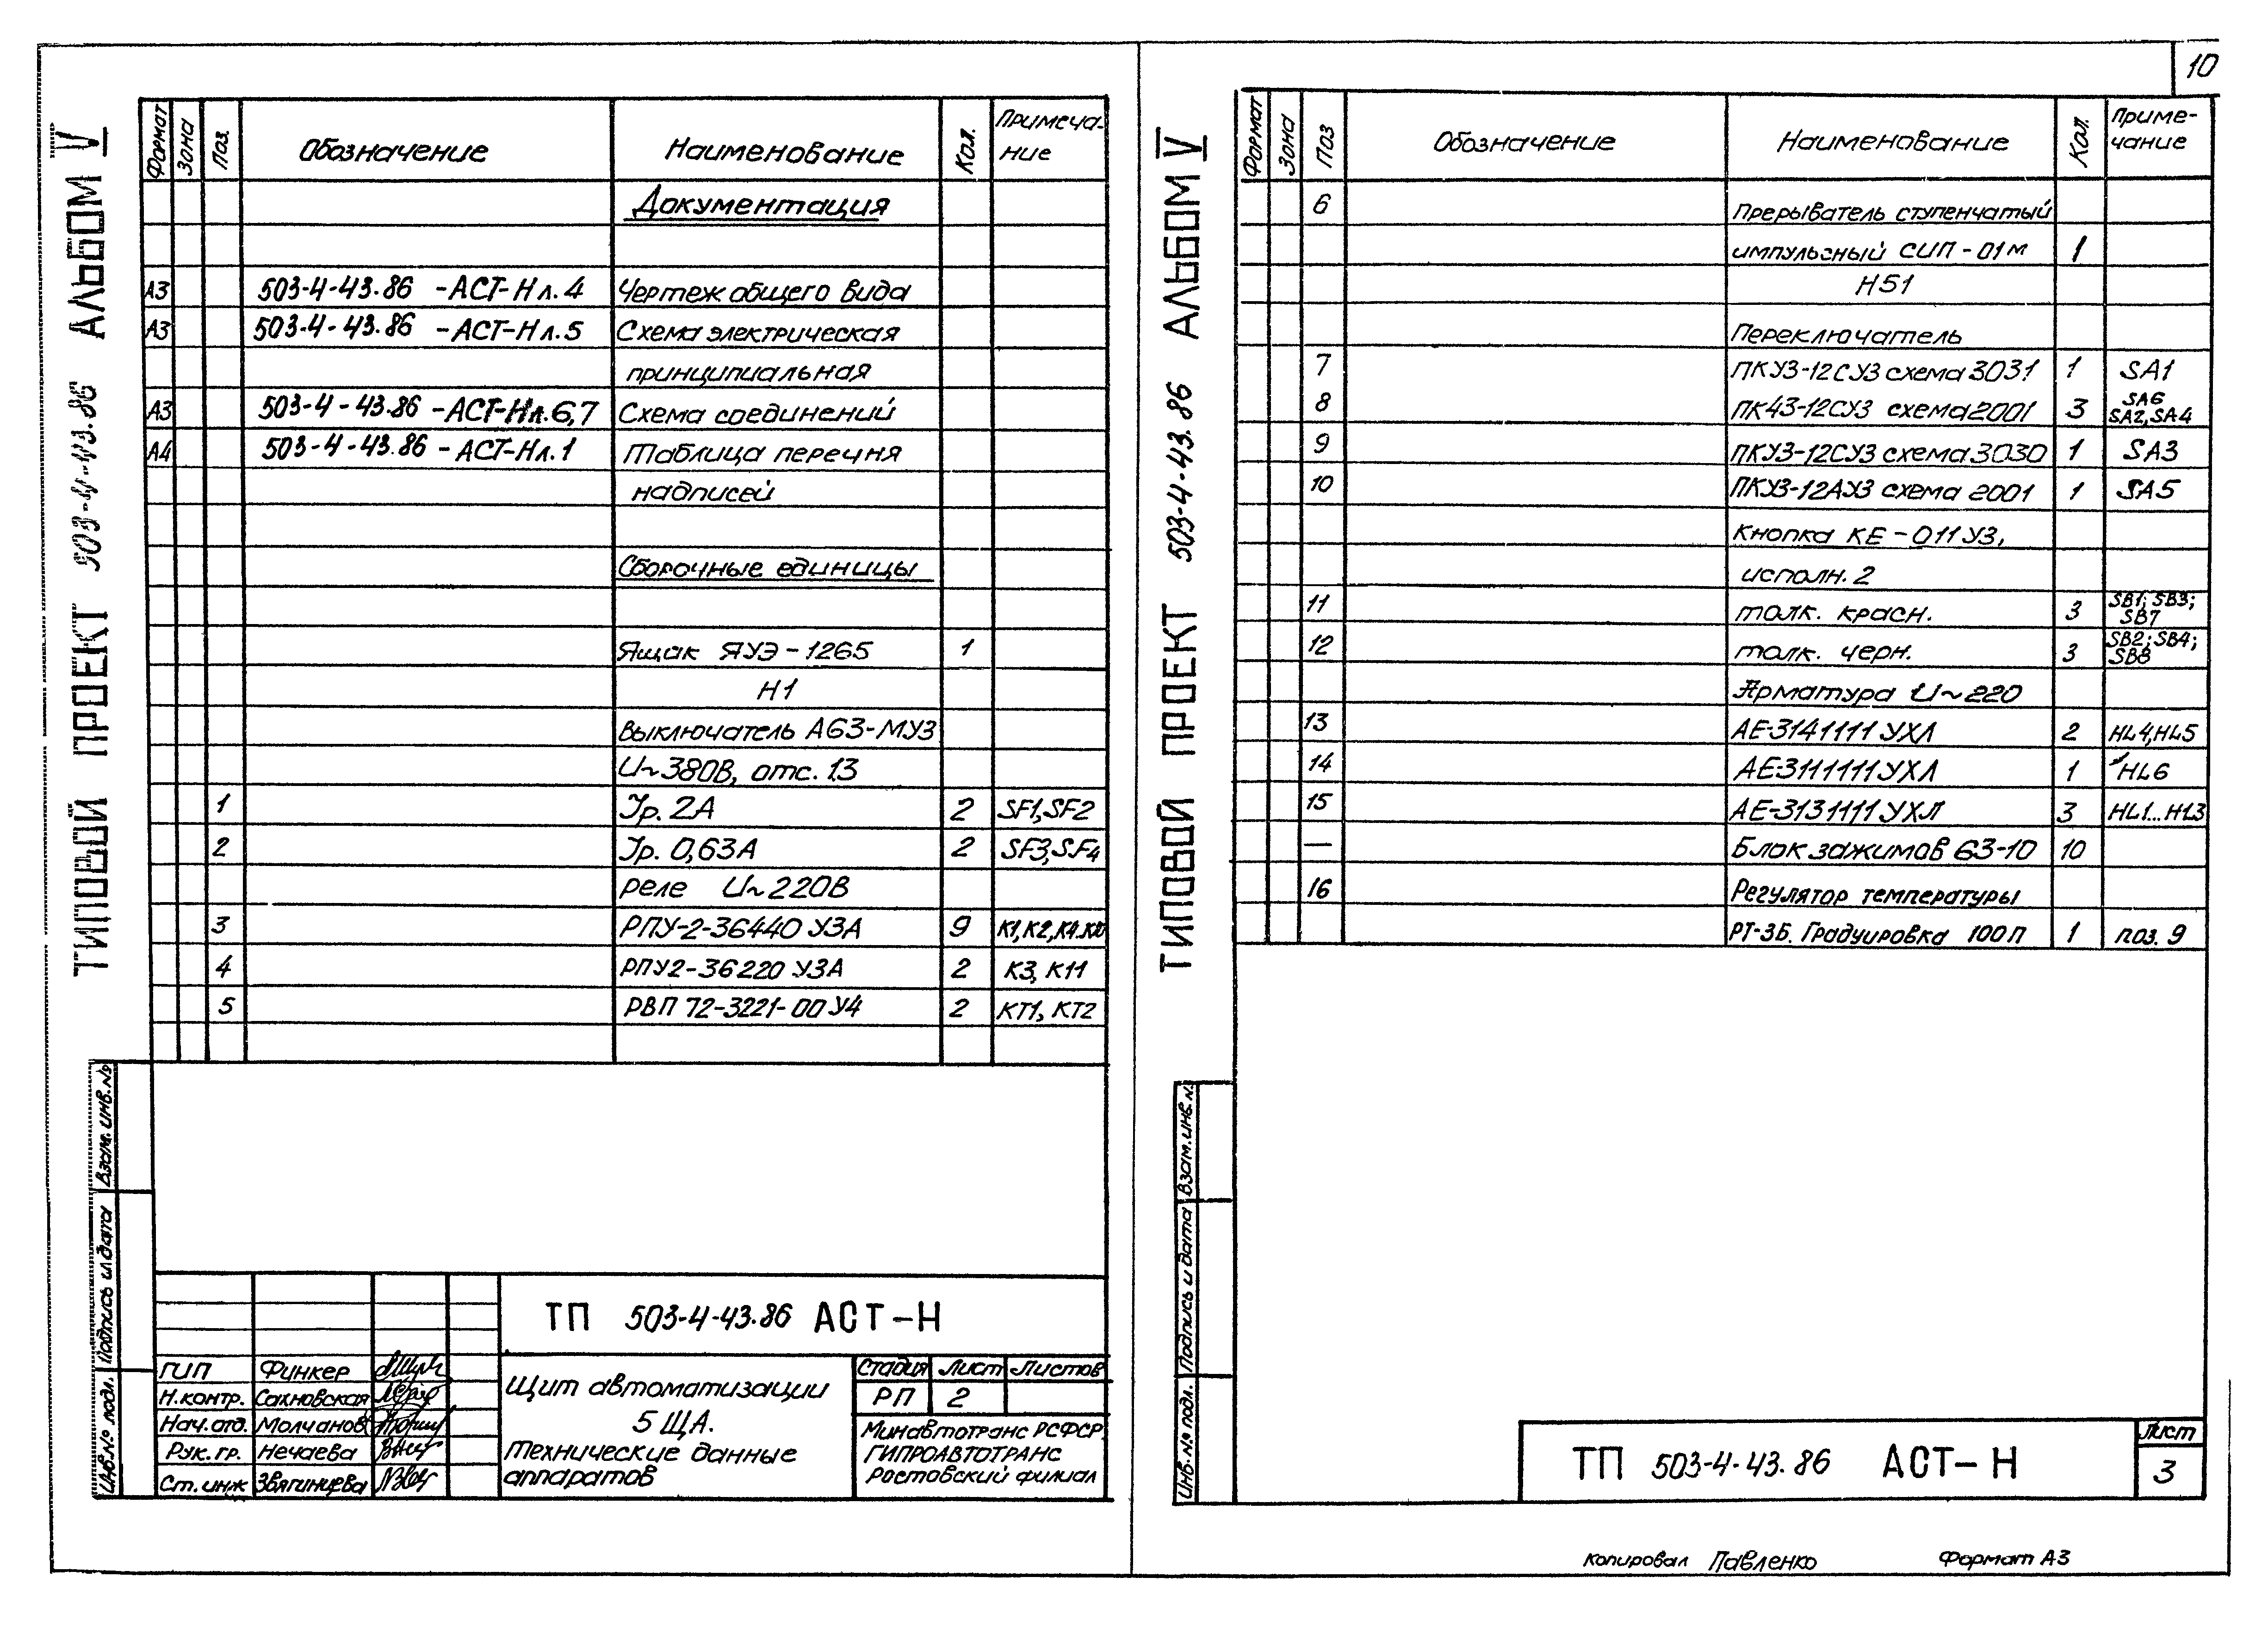 10
ТИПОВОЙ ПРОЕКТ 503-4-43.86 АЛЬБОМ V
Формат Зона Поз. Обозначение Наименование Кол. Примеча-
ние
Документация
А3 503-4-43.86 -АСТ-Н л.4 Чертеж общего вида
А3 503-4-43.86 -АСТ-Н л.5 Схема электрическая
принципиальная
А3 503-4-43.86 -АСТ-Н л.6,7 Схема соединений
А4 503-4-43.86 -АСТ-Н л.1 Таблица перечня
надписей
Сборочные единицы
Ящик ЯУЭ-1265 1
Н1
Выключатель А63-МУ3
U~380В, отс. 1.3
1 Iр. 2А 2 SF1, SF2
2 Iр. 0,63А 2 SF3, SF4
реле U~220В
3 РПУ-2-36440 У3А 9 К1, К2, К4..К10
4 РПУ2-36220 У3А 2 К3, К11
5 РВП 72-3221-00 У4 2 КТ1, КТ2
Взам. инв. №
Подпись и дата
Инв. № подл.
ТП 503-4-43.86 АСТ-Н
ГИП Финкер
Н.контр. Сахновская
Нач. отд. Молчанов
Рук. гр. Нечаева
Ст. инж Звягинцева
Щит автоматизации
5 ЩА.
Технические данные
аппаратов
Стадия Лист Листов
РП 2
Минавтотранс РСФСР
ГИПРОАВТОТРАНС
Ростовский филиал
ТИПОВОЙ ПРОЕКТ 503-4-43.86 АЛЬБОМ V
Формат Зона Поз Обозначение Наименование Кол. Приме-
чание
6 Прерыватель ступенчатый
импульсный СИП-01М 1
Н51
Переключатель
7 ПКУ3-12СУ3 схема 3031 1 SA1
8 ПК43-12СУ3 схема 2001 3 SA6
SA2, SA4
9 ПКУ3-12СУ3 схема 3030 1 SA3
10 ПКУ3-12АУ3 схема 2001 1 SA5
Кнопка КЕ-011 У3,
исполн. 2
11 толк. красн. 3 SB1; SB3;
SB7
12 толк. черн. 3 SB2; SB4;
SB8
Арматура U~220
13 АЕ-3141111 УХЛ 2 HL4, HL5
14 АЕ-3111111 УХЛ 1 HL6
15 АЕ-3131111 УХЛ 3 HL1...HL3
— Блок зажимов Б3-10 10
16 Регулятор температуры
РТ-3Б. Градуировка 100П 1 поз. 9
Взам. инв. №
Подпись и дата
Инв. № подл.
ТП 503-4-43.86 АСТ-Н
Лист
3
Копировал Павленко Формат А3